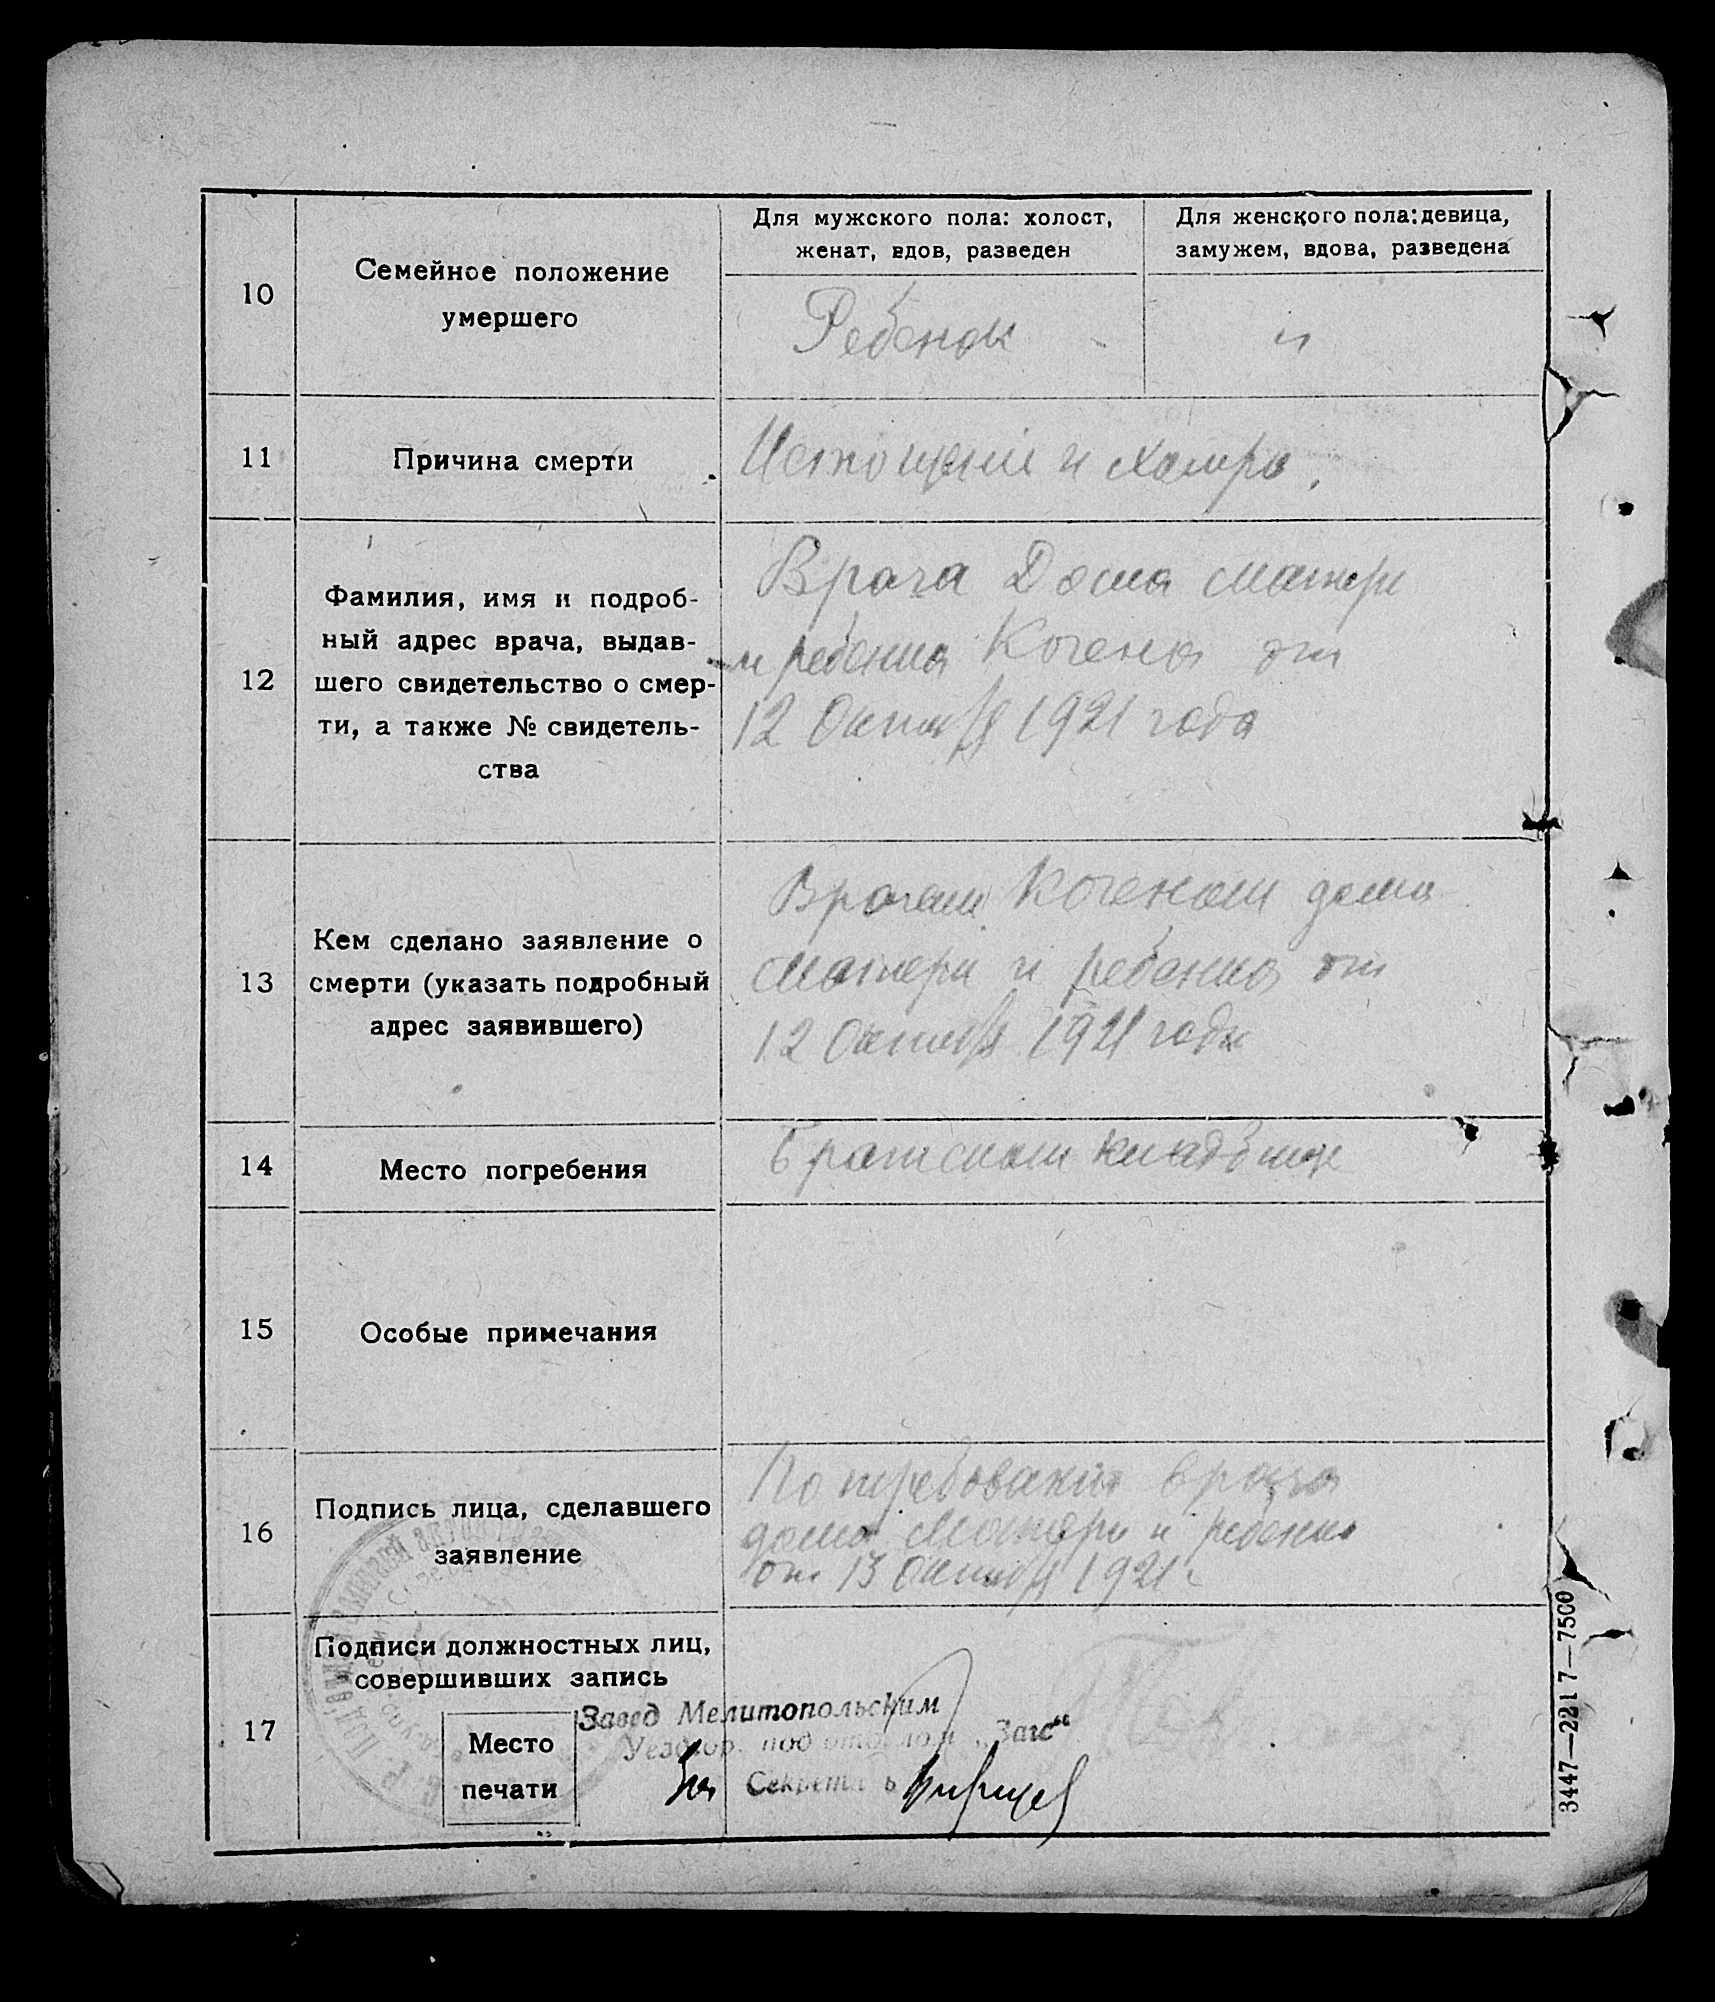 Для мужского пола: холост,
женат, вдов, разведен
Для женского пола: девица,
замужем, вдова, разведена
10
Семейное положение
умершего
Ребенок
"
11
Причина смерти
Истощение и холера.
12
Фамилия, имя и подроб-
ный адрес врача, выдав-
шего свидетельство о смер-
ти, а также № свидетель-
ства
Врача Дома матери
и ребенка Когена от
12 Октября 1921 года
13
Кем сделано заявление о
смерти (указать подробный
адрес заявившего)
Врачем Когеном дома
Матери и ребенка от
12 Октября 1921 года
14
Место погребения
Братском кладбище
15
Особые примечания
16
Подпись лица, сделавшего
заявление
По требованию врача
дома Матери и ребенка
от 13 Октября 1921 г.
17
Подписи должностных лиц,
совершивших запись
Место
печати
Завед Мелитопольским
под „Загс“
За Секретарь
3447—2217—7500